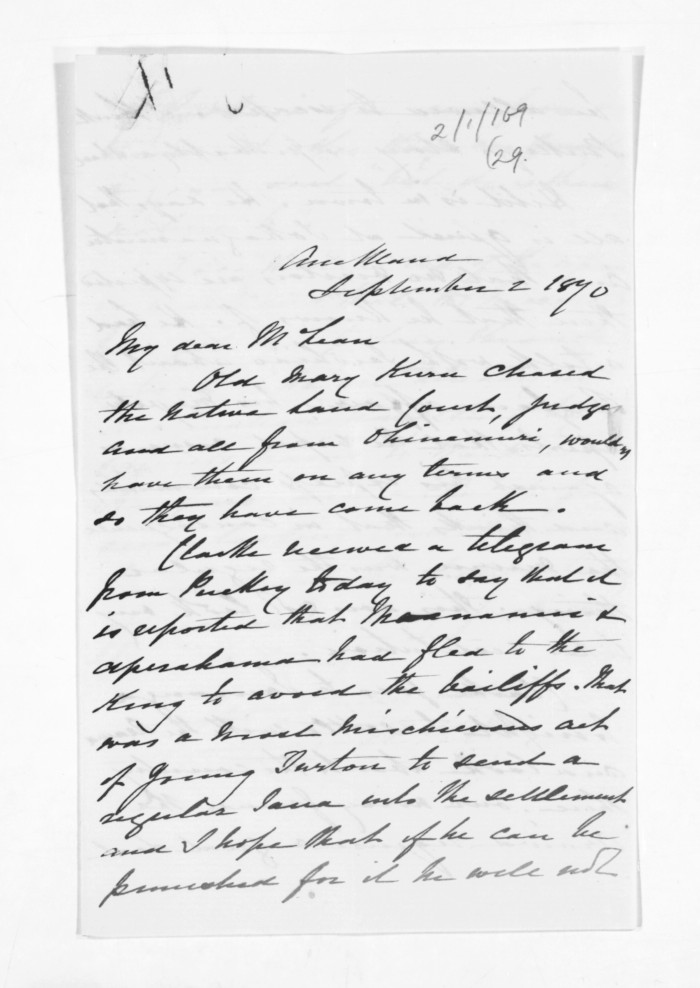 2/1/169
(29.
Auckland
September 2 1870
My dear McLean
Old Mary Kuru chased
the Native Land Court, judge
and all from Ohinemuri, would
have them on any terms and
so they have come back.
Clarke received a telegram
from Puckey today to say that it
is reported that &
Aperahama had fled to the
King to avoid the bailiffs. That
was a most mischievous act
of young Turton to send a
regular into the settlement
and I hope that if he can be
punished for it he will not